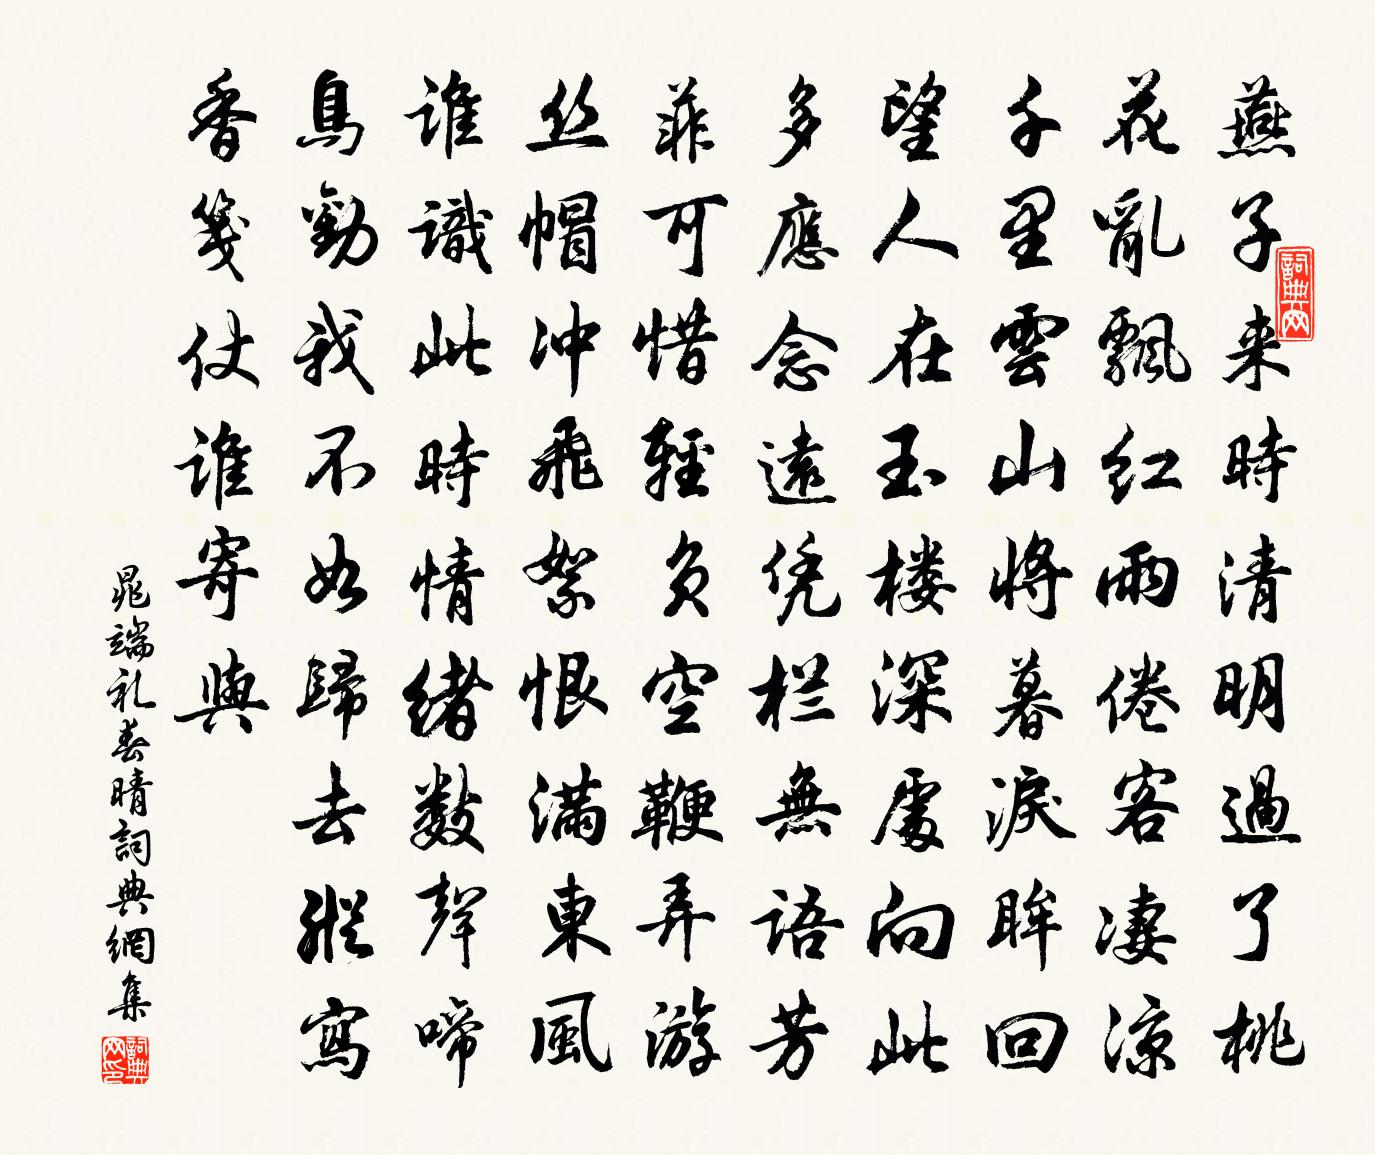 燕子来時清明過了桃
花亂飄红雨倦客凄凉
千里雲山將暮淚眸回
望人在玉楼深處向此
多應念遠凭栏無語芳
菲可惜輕負空鞭弄游
丝帽冲飛絮恨滿東風
誰識此時情緒數聲啼
鳥勸我不如歸去縱寫
香箋仗誰寄與
晁端礼春晴詞典網集
詞典网
詞典网印